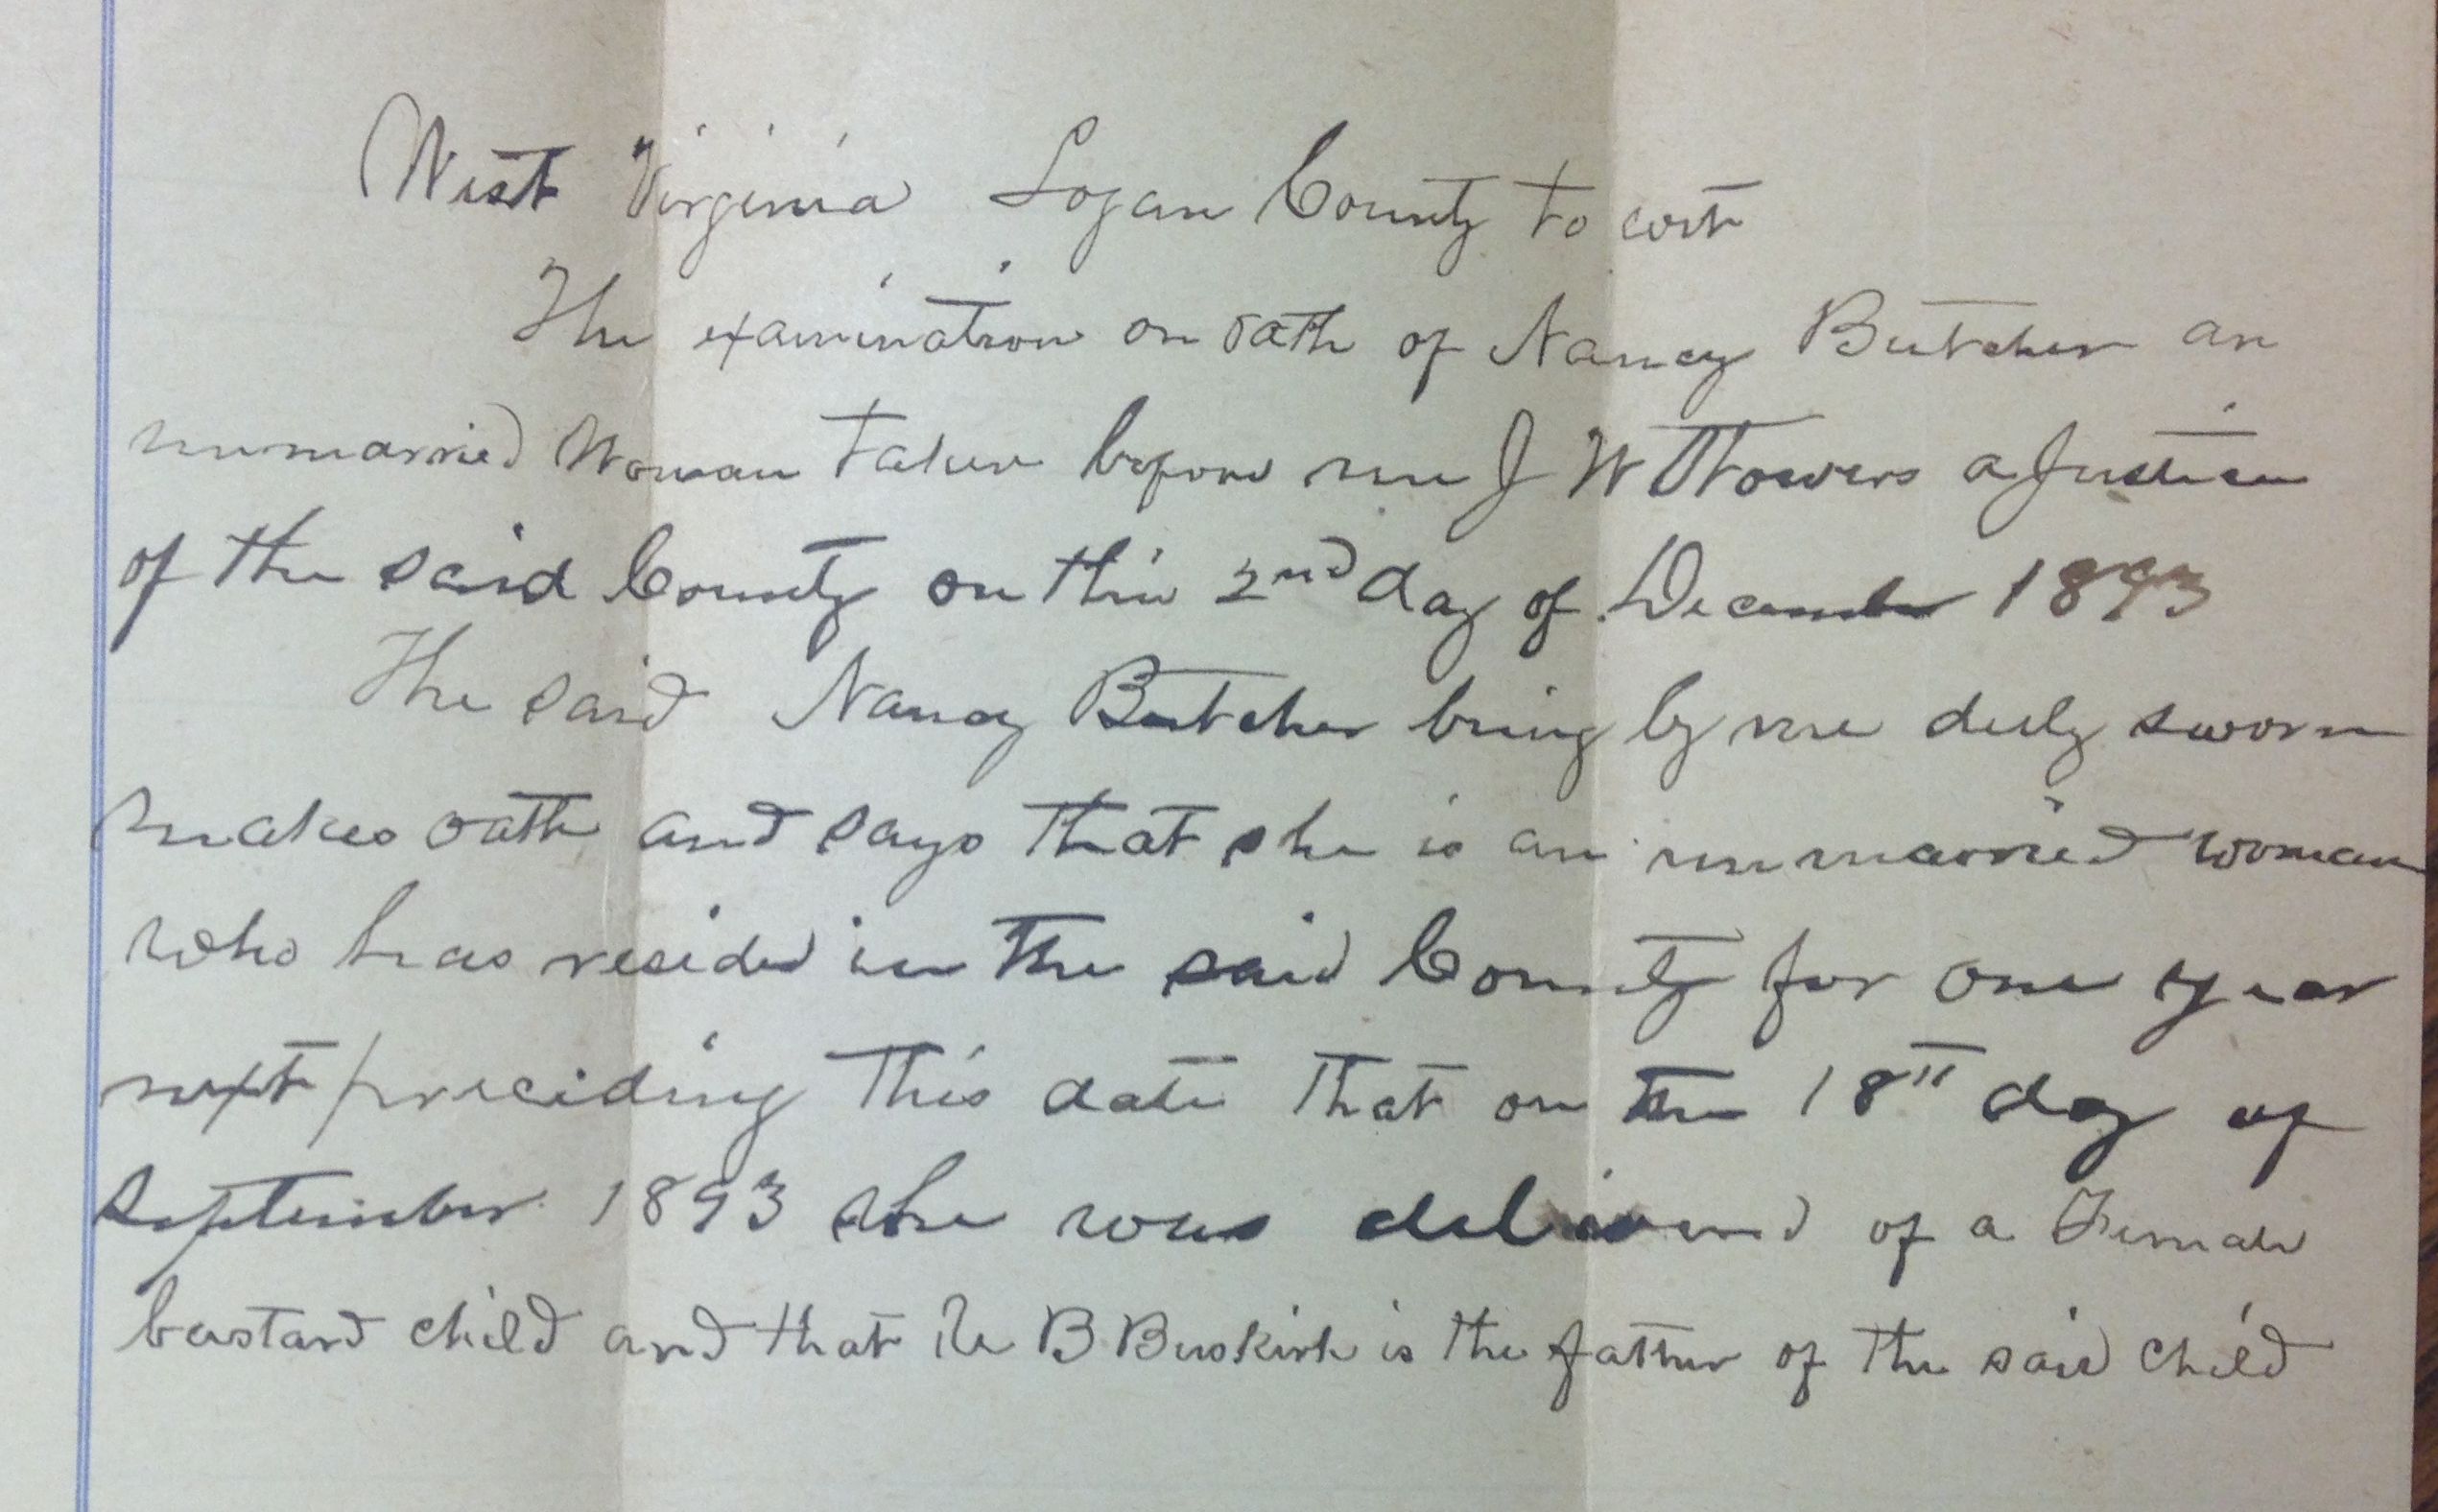 West Virginia Logan County to wit
The examination on oath of Nancy Butcher an
unmarried Woman taken before me J W Towers a Justice
of the said County on this 2nd day of December 1893
The said Nancy Butcher being by me duly sworn
makes oath and says that she is an unmarried woman
who has resided in the said County for one year
next preceding this date that on the 18th day of
September 1893 she was delivered of a Female
bastard child and that B Buskirk is the father of the said child